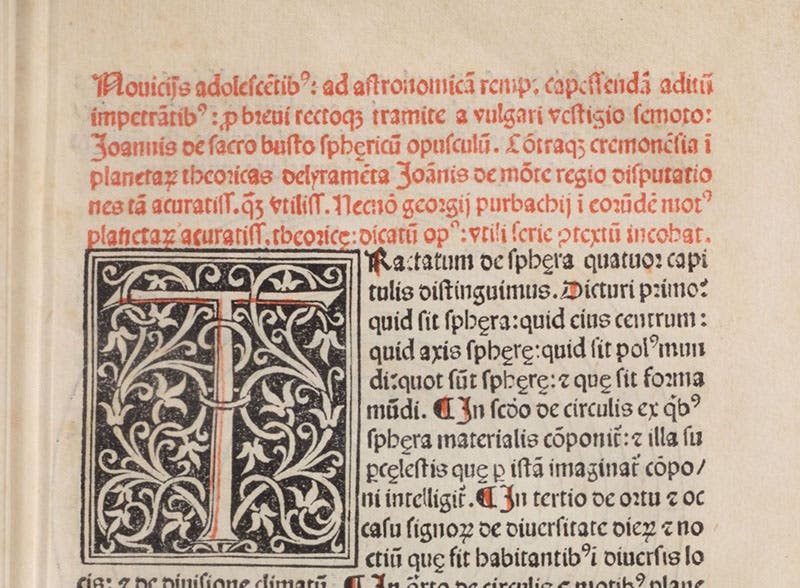 Nouicijs adolescẽtibꝰ: ad astronomicã remp: capessendã aditũ
impetrãtibꝰ: ꝓ breui rectoqꝫ tramite a vulgari vestigio semoto:
Joannis de sacro busto sphęricũ opusculũ. Cõtraqꝫ cremonẽsia ĩ
planetaꝝ theoricas delyramẽta Joãnis de mõte regio disputatio
nes tã acuratiss. qꝫ̃ vtiliss. Necnõ georgij purbachij ĩ eorũdẽ motꝰ
planetaꝝ acuratiss. theoricę: dicatũ opꝰ: vtili serie ꝯtextũ inchoat.
TRactatum de sphęra quatuor capi
tulis distinguimus. Dicturi primo:
quid sit sphęra: quid eius centrum:
quid axis sphęrę: quid sit polꝰ mun
di: quot sũt sphęrę: ⁊ quę sit forma
mũdi. ¶ In scďo de circulis ex qͥbꝰ
sphęra materialis cõponit᷑: ⁊ illa su
ꝑcęlestis quę ꝑ istã imaginat᷑ cõpo/
ni intelligit᷑. ¶ In tertio de ortu ⁊ oc
casu signoꝝ de diuersitate dieꝝ ⁊ no
ctiũ quę fit habitantibꝰ ĩ diuersis lo
cis: ⁊ de diuisione climatũ. ¶ In q̃rto de circulis ⁊ motibꝰ plane